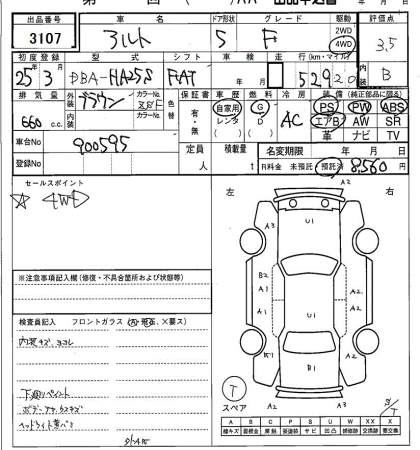 出品番号 車名 ドア形状 グレード 駆動 評価点
3107 アルト 5 F 2WD 4WD 3.5
初度登録 型式 シフト 車検 走行(km・マイル) 内装
25年3月 DBA-HA25S FAT 年 月 52920 B
排気量 外装 ブラウン カラーNo. 色替 保証書 車歴 燃料 冷房 装備(純正部品に限る)
660 c.c. 内装 カラーNo. 有・無 自家用 レンタ G D AC PS PW ABS
エアB AW SR
革 ナビ TV
車台No 900595 定員 人 積載量 t 名変期限 年 月 日
登録No R料金 未預託 預託済 8,560 円
セールスポイント
☆ 4WD
左 右
A2
A3 U1
B2 A2
A1 U1 A2
A1 A2
B1
A2 A3
※注意事項記入欄(修復・不具合箇所および状態等)
検査員記入 フロントガラス(A・飛石、×要ス)
内装キズ、ヨゴレ
下回りペイント
ボデーアチコチキズ
ヘッドライト黄バミ
T
スペア
S/T
A B C P S U W X XX
線キズ 腐蝕 要塗装 サビ 凹凸 補修跡 要交換